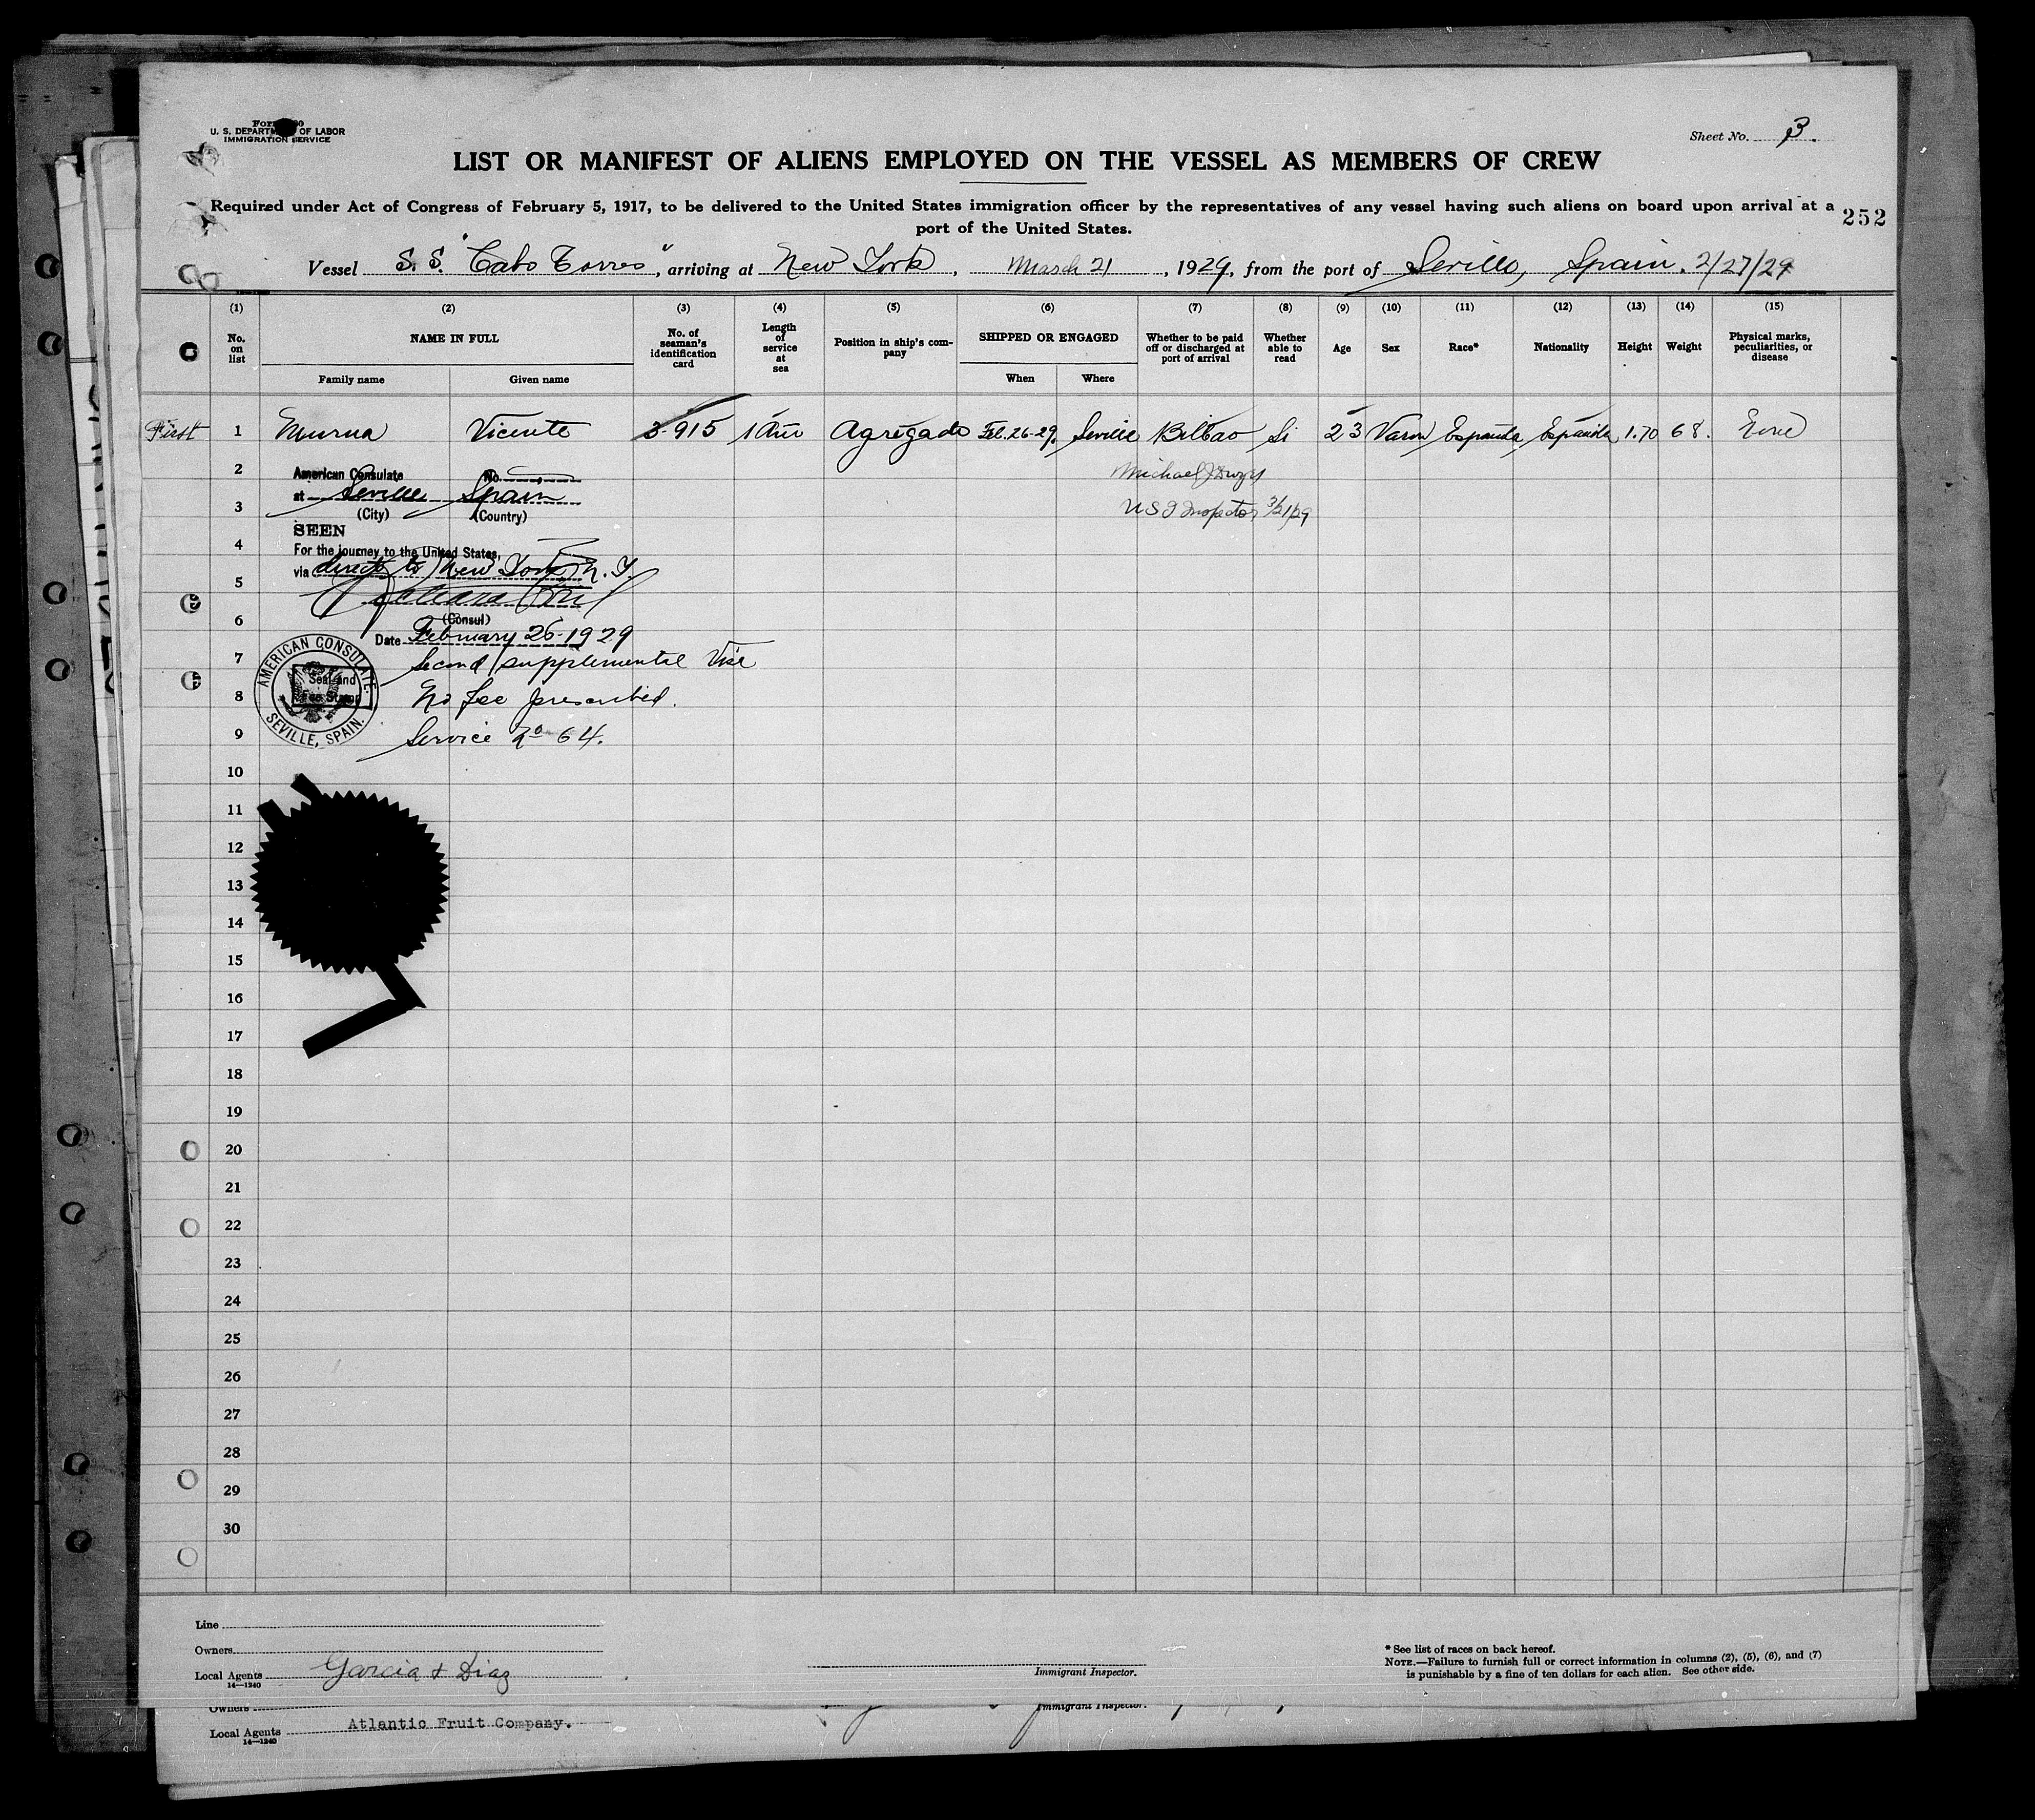 U. S. DEPARTMENT OF LABOR
IMMIGRATION SERVICE
Sheet No. 3.
LIST OR MANIFEST OF ALIENS EMPLOYED ON THE VESSEL AS MEMBERS OF CREW
Required under Act of Congress of February 5, 1917, to be delivered to the United States immigration officer by the representatives of any vessel having such aliens on board upon arrival at a
port of the United States.
252
Vessel S. S. "Cabo Torres", arriving at New York, March 21, 1929, from the port of Sevilla, Spain. 2/27/29
(1) (2) (3) (4) (5) (6) (7) (8) (9) (10) (11) (12) (13) (14) (15)
No. on list
NAME IN FULL
Family name
Given name
No. of seaman's identification card
Length of service at sea
Position in ship's company
SHIPPED OR ENGAGED
When
Where
Whether to be paid off or discharged at port of arrival
Whether able to read
Age
Sex
Race*
Nationality
Height
Weight
Physical marks, peculiarities, or disease
First 1 Murua Vicente 3-915 1 Año Agregado Feb. 26-29. Seville Bilbao Si 23 Varon Española Española 1.70 68.
2
American Consulate No.
at Seville Spain
(City) (Country)
3
SEEN
For the journey to the United States,
4
via direct to New York, N. Y.
5
(Consul)
6
Date February 26-1929
7
Second supplemental Visé
8
No fee prescribed.
9
Service No 64.
AMERICAN CONSULATE
Seal and
Fee Stamp
SEVILLE, SPAIN.
Michael J.
U S I Inspector 3/21/29
10
11
12
13
14
15
16
17
18
19
20
21
22
23
24
25
26
27
28
29
30
Line
Owners
Local Agents Garcia & Diaz
14—1240
Immigrant Inspector.
* See list of races on back hereof.
NOTE.—Failure to furnish full or correct information in columns (2), (5), (6), and (7)
is punishable by a fine of ten dollars for each alien. See other side.
Owners
Immigrant Inspector.
Local Agents Atlantic Fruit Company.
14—1240